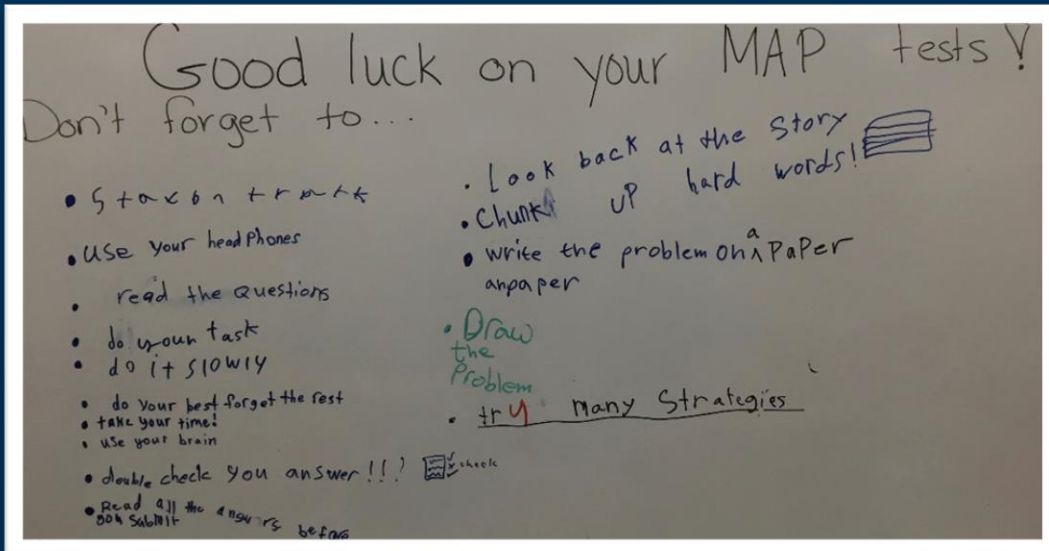 Good luck on your MAP tests!
Don't forget to...
• Staxon tratk
• use your headphones
• read the questions
• do your task
• do it slowly
• do your best forget the rest
• take your time!
• use your brain
• double check you answer!!! check
• Read all the answers before
you submit
• Look back at the story
• Chunk up hard words!
• write the problem on a paper
anpaper
• Draw
the
Problem
• try many strategies